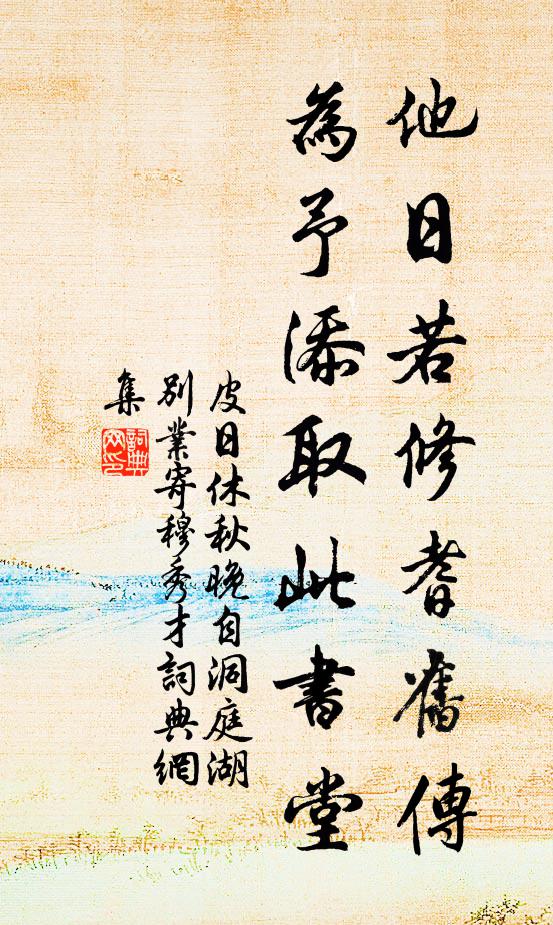 他日若修耆舊傳
為予添取此書堂
皮日休秋晚自洞庭湖
別業寄穆秀才詞典網
集
詞典
网印